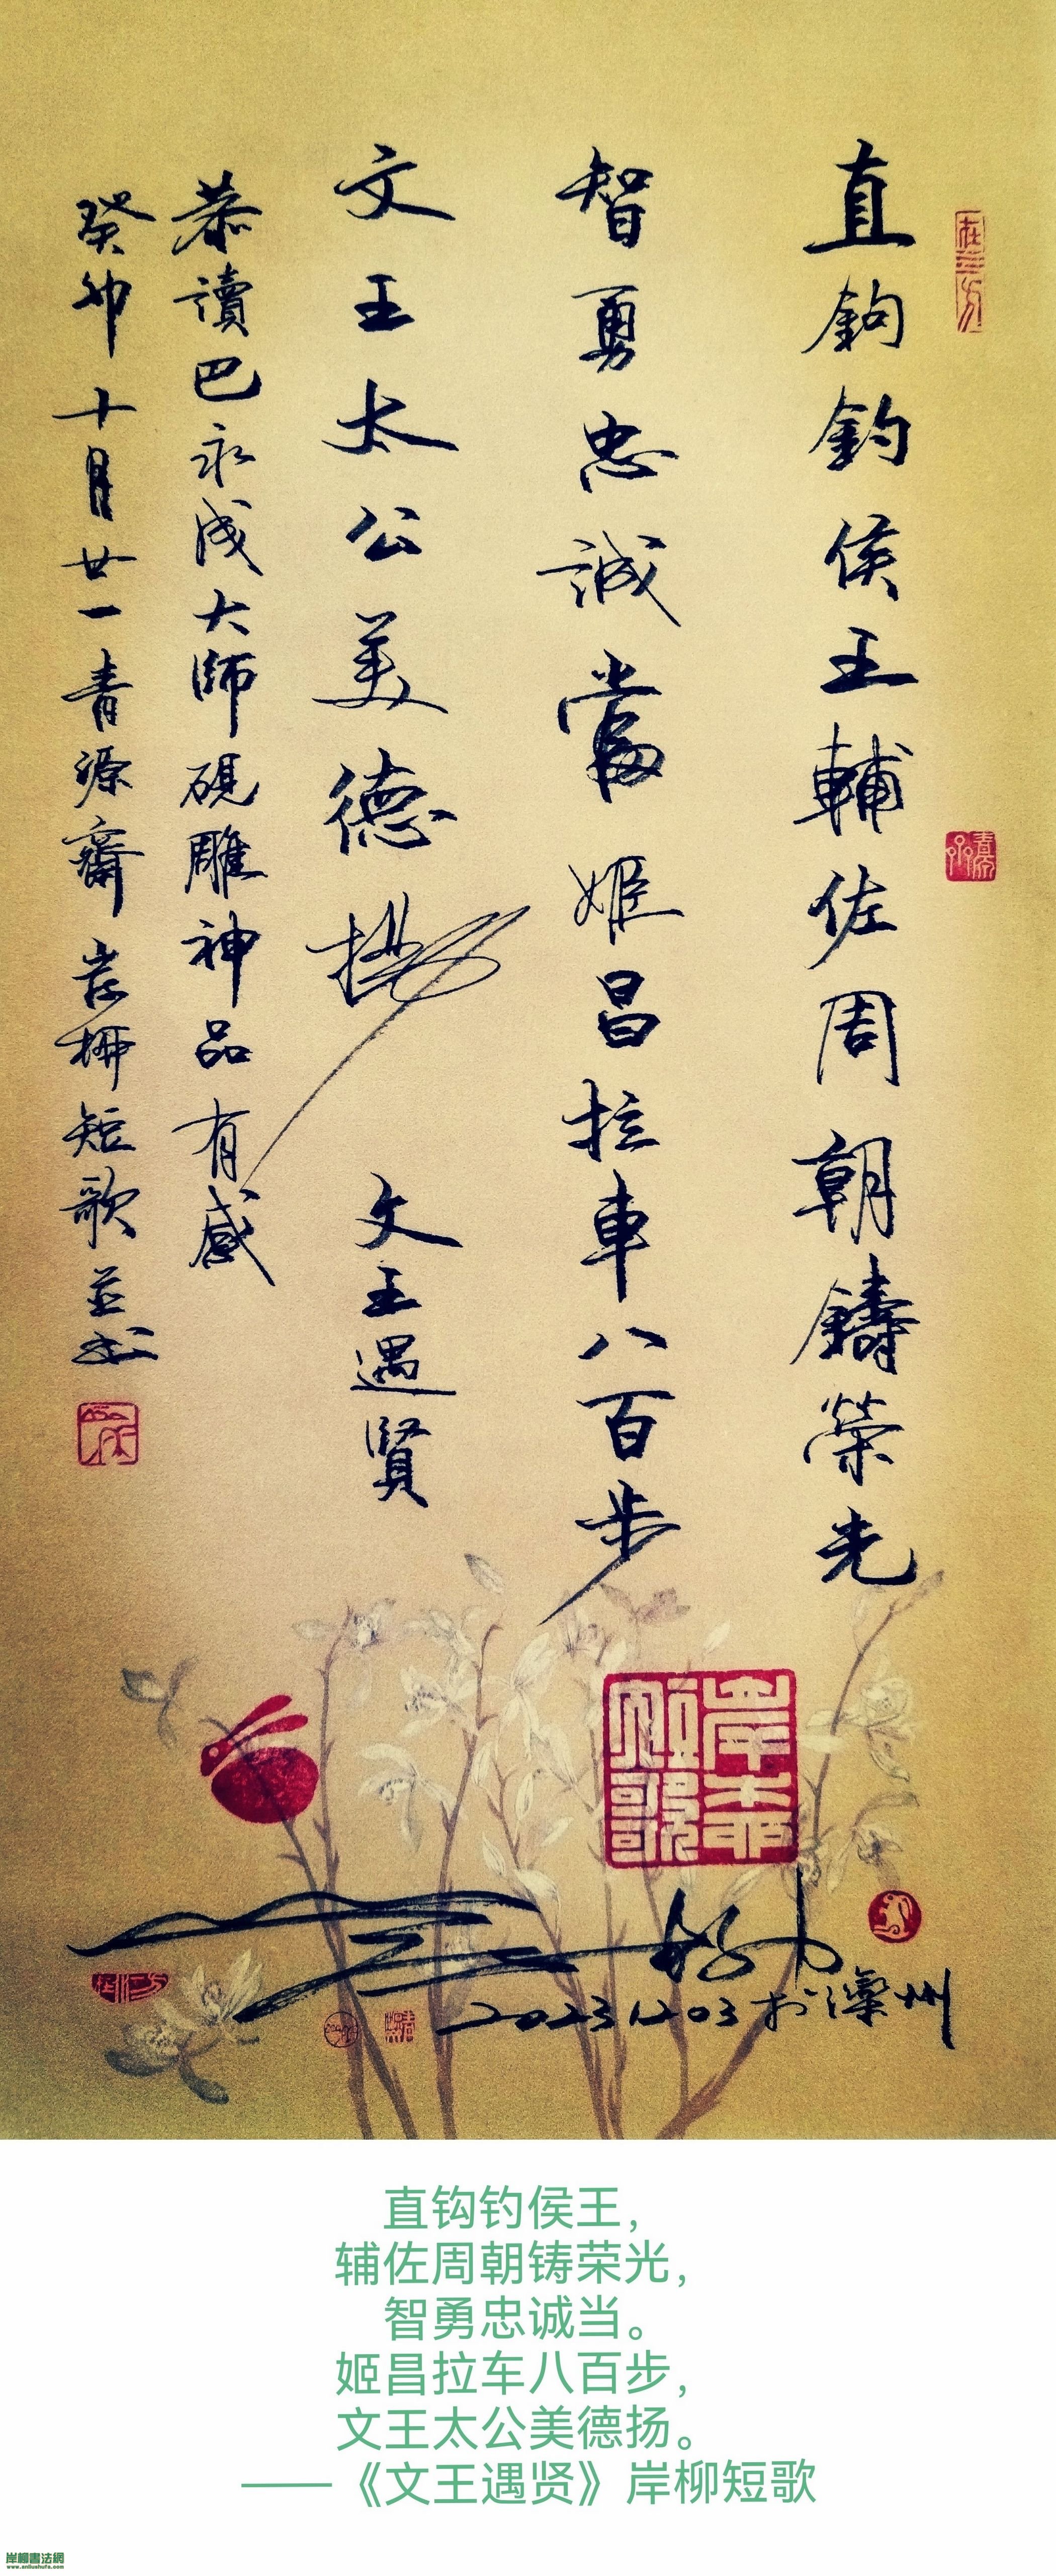 直鉤釣侯王輔佐周朝鑄榮光
智勇忠誠當姬昌拉車八百步
文王太公美德揚 文王遇賢
恭讀巴永成大師硯雕神品有感
癸卯十月廿一青源齋岸柳短歌並书
岸柳短歌
20231203於濼州
直钩钓侯王，
辅佐周朝铸荣光，
智勇忠诚当。
姬昌拉车八百步，
文王太公美德扬。
——《文王遇贤》岸柳短歌
岸柳書法網
www.anliushufa.com